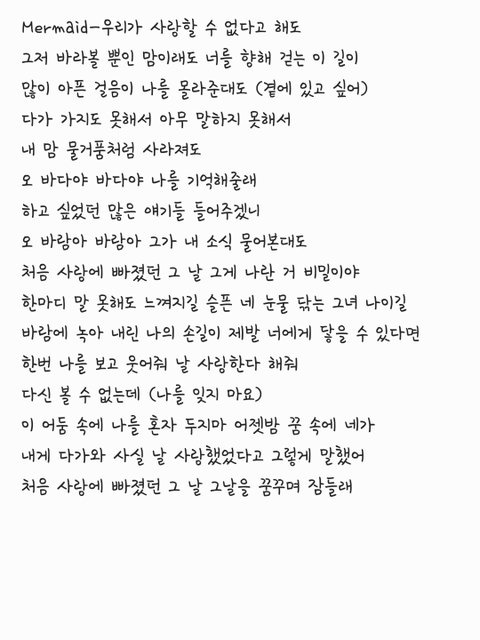 Mermaid-우리가 사랑할 수 없다고 해도
그저 바라볼 뿐인 맘이래도 너를 향해 걷는 이 길이
많이 아픈 걸음이 나를 몰라준대도 (곁에 있고 싶어)
다가 가지도 못해서 아무 말하지 못해서
내 맘 물거품처럼 사라져도
오 바다야 바다야 나를 기억해줄래
하고 싶었던 많은 얘기들 들어주겠니
오 바람아 바람아 그가 내 소식 물어본대도
처음 사랑에 빠졌던 그 날 그게 나란 거 비밀이야
한마디 말 못해도 느껴지길 슬픈 네 눈물 닦는 그녀 나이길
바람에 녹아 내린 나의 손길이 제발 너에게 닿을 수 있다면
한번 나를 보고 웃어줘 날 사랑한다 해줘
다신 볼 수 없는데 (나를 잊지 마요)
이 어둠 속에 나를 혼자 두지마 어젯밤 꿈 속에 네가
내게 다가와 사실 날 사랑했었다고 그렇게 말했어
처음 사랑에 빠졌던 그 날 그날을 꿈꾸며 잠들래